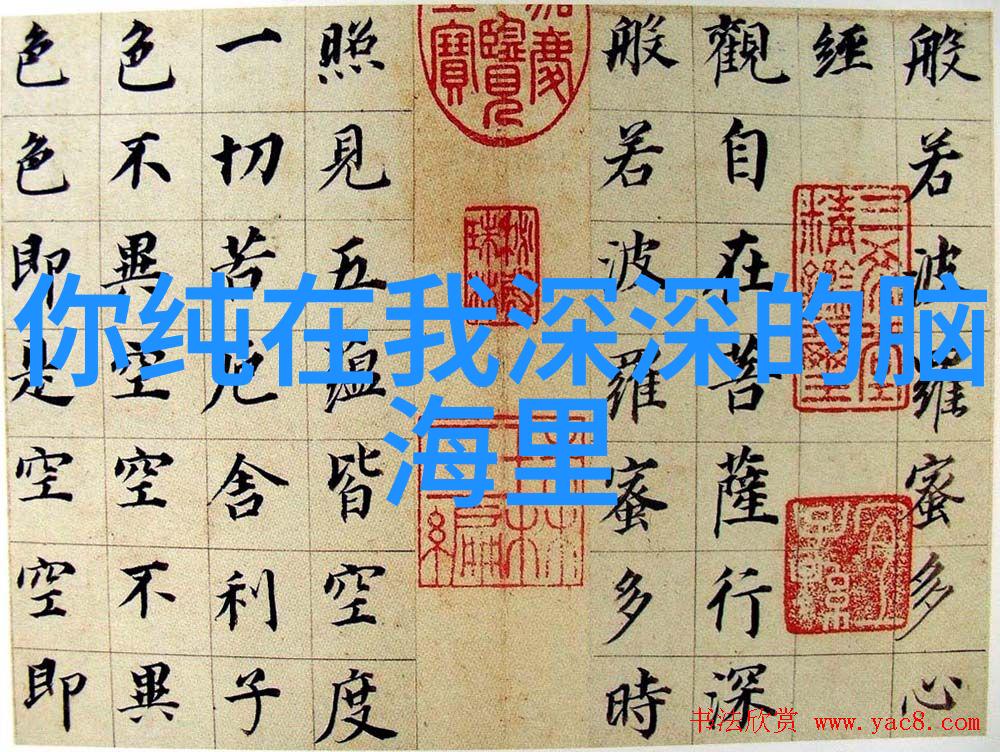 你纯在我深深的脑
海里
般若波羅蜜多心
經
觀自在菩薩行深
般若波羅蜜多時
照見五蘊皆空度
一切苦厄舍利子
色不異空空不異
色色即是空空即
书法欣赏 www.yac8.com